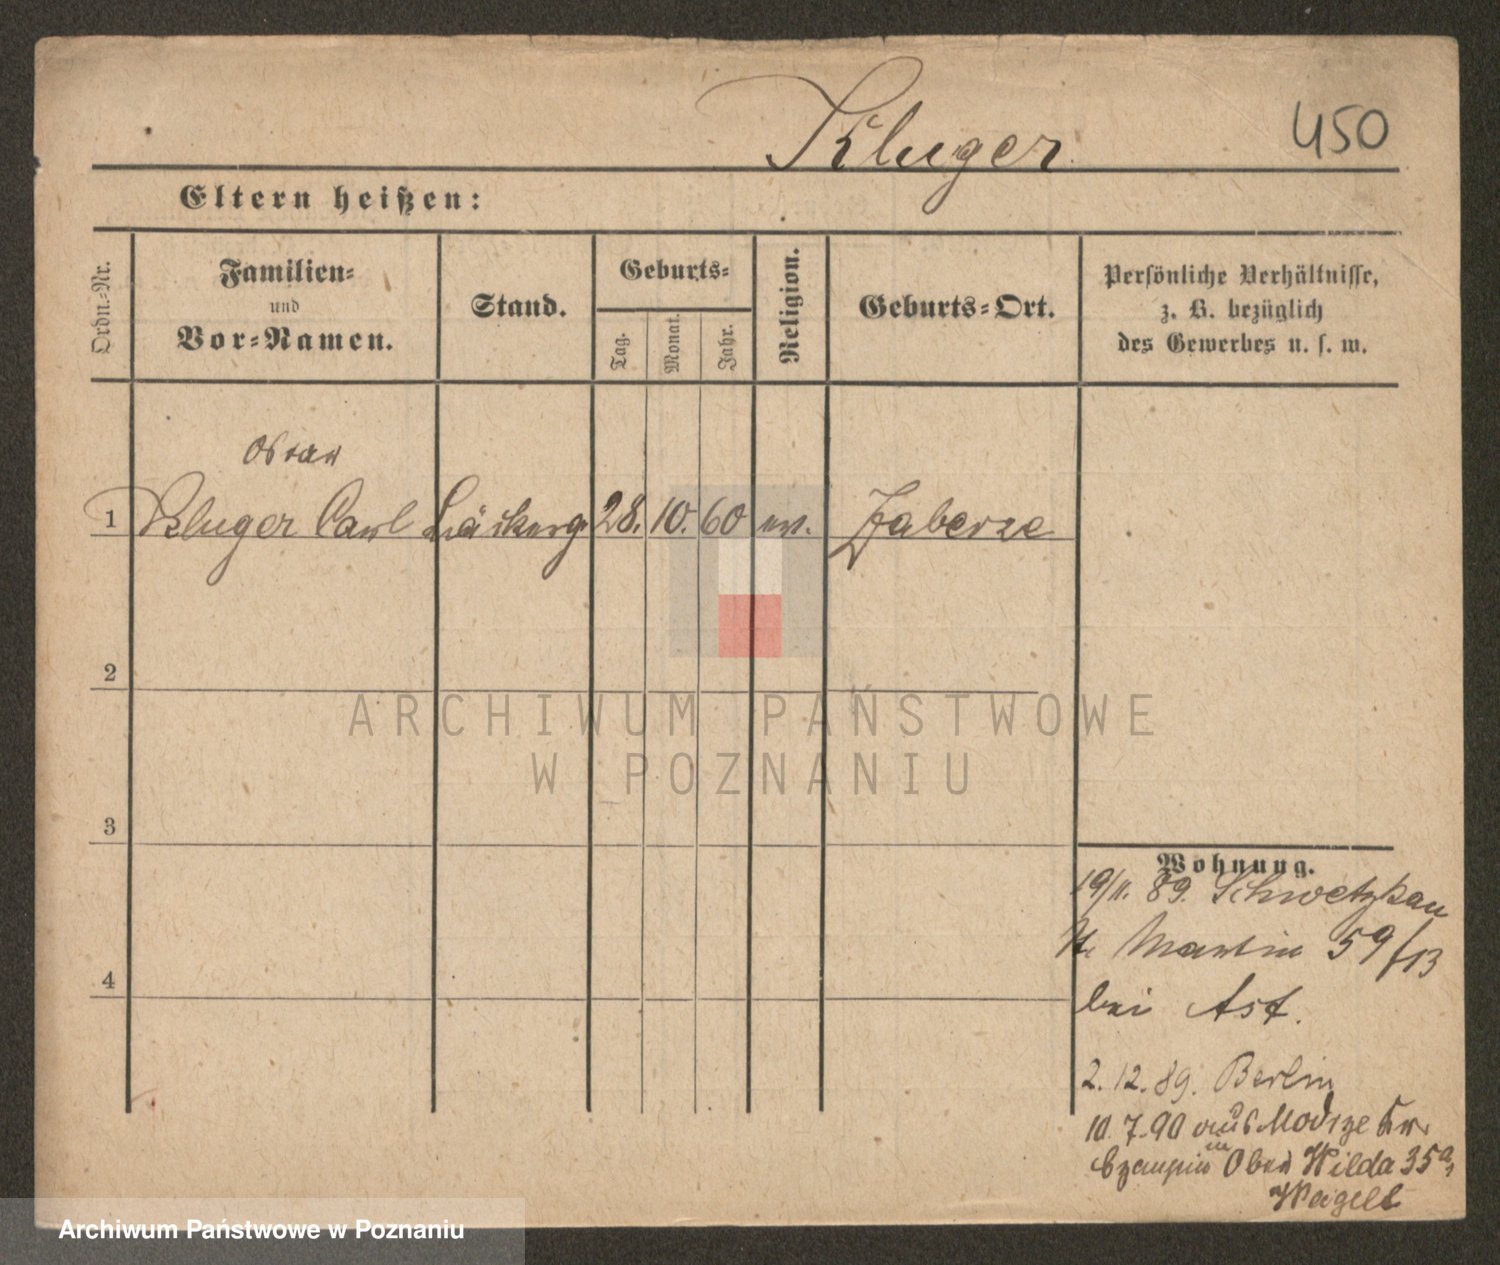 Kluger
450
Eltern heißen:
Ordn.-Nr.
Familien-
und
Vor-Namen.
Stand.
Geburts-
Tag.
Monat.
Jahr.
Religion.
Geburts-Ort.
Persönliche Verhältnisse,
z. B. bezüglich
des Gewerbes u. s. w.
Oskar
1 Kluger Carl 28. 10. 60 ev. Zaborze
2
ARCHIWUM PAŃSTWOWE
W POZNANIU
3
Wohnung.
19/11. 89. Schwetzkau
St. Martin 59/13
4
bei Ast.
2. 12. 89. Berlin
10. 7. 90 aus Modrze Kr.
in Ober Wilda 35a,
Weigelt
Archiwum Państwowe w Poznaniu